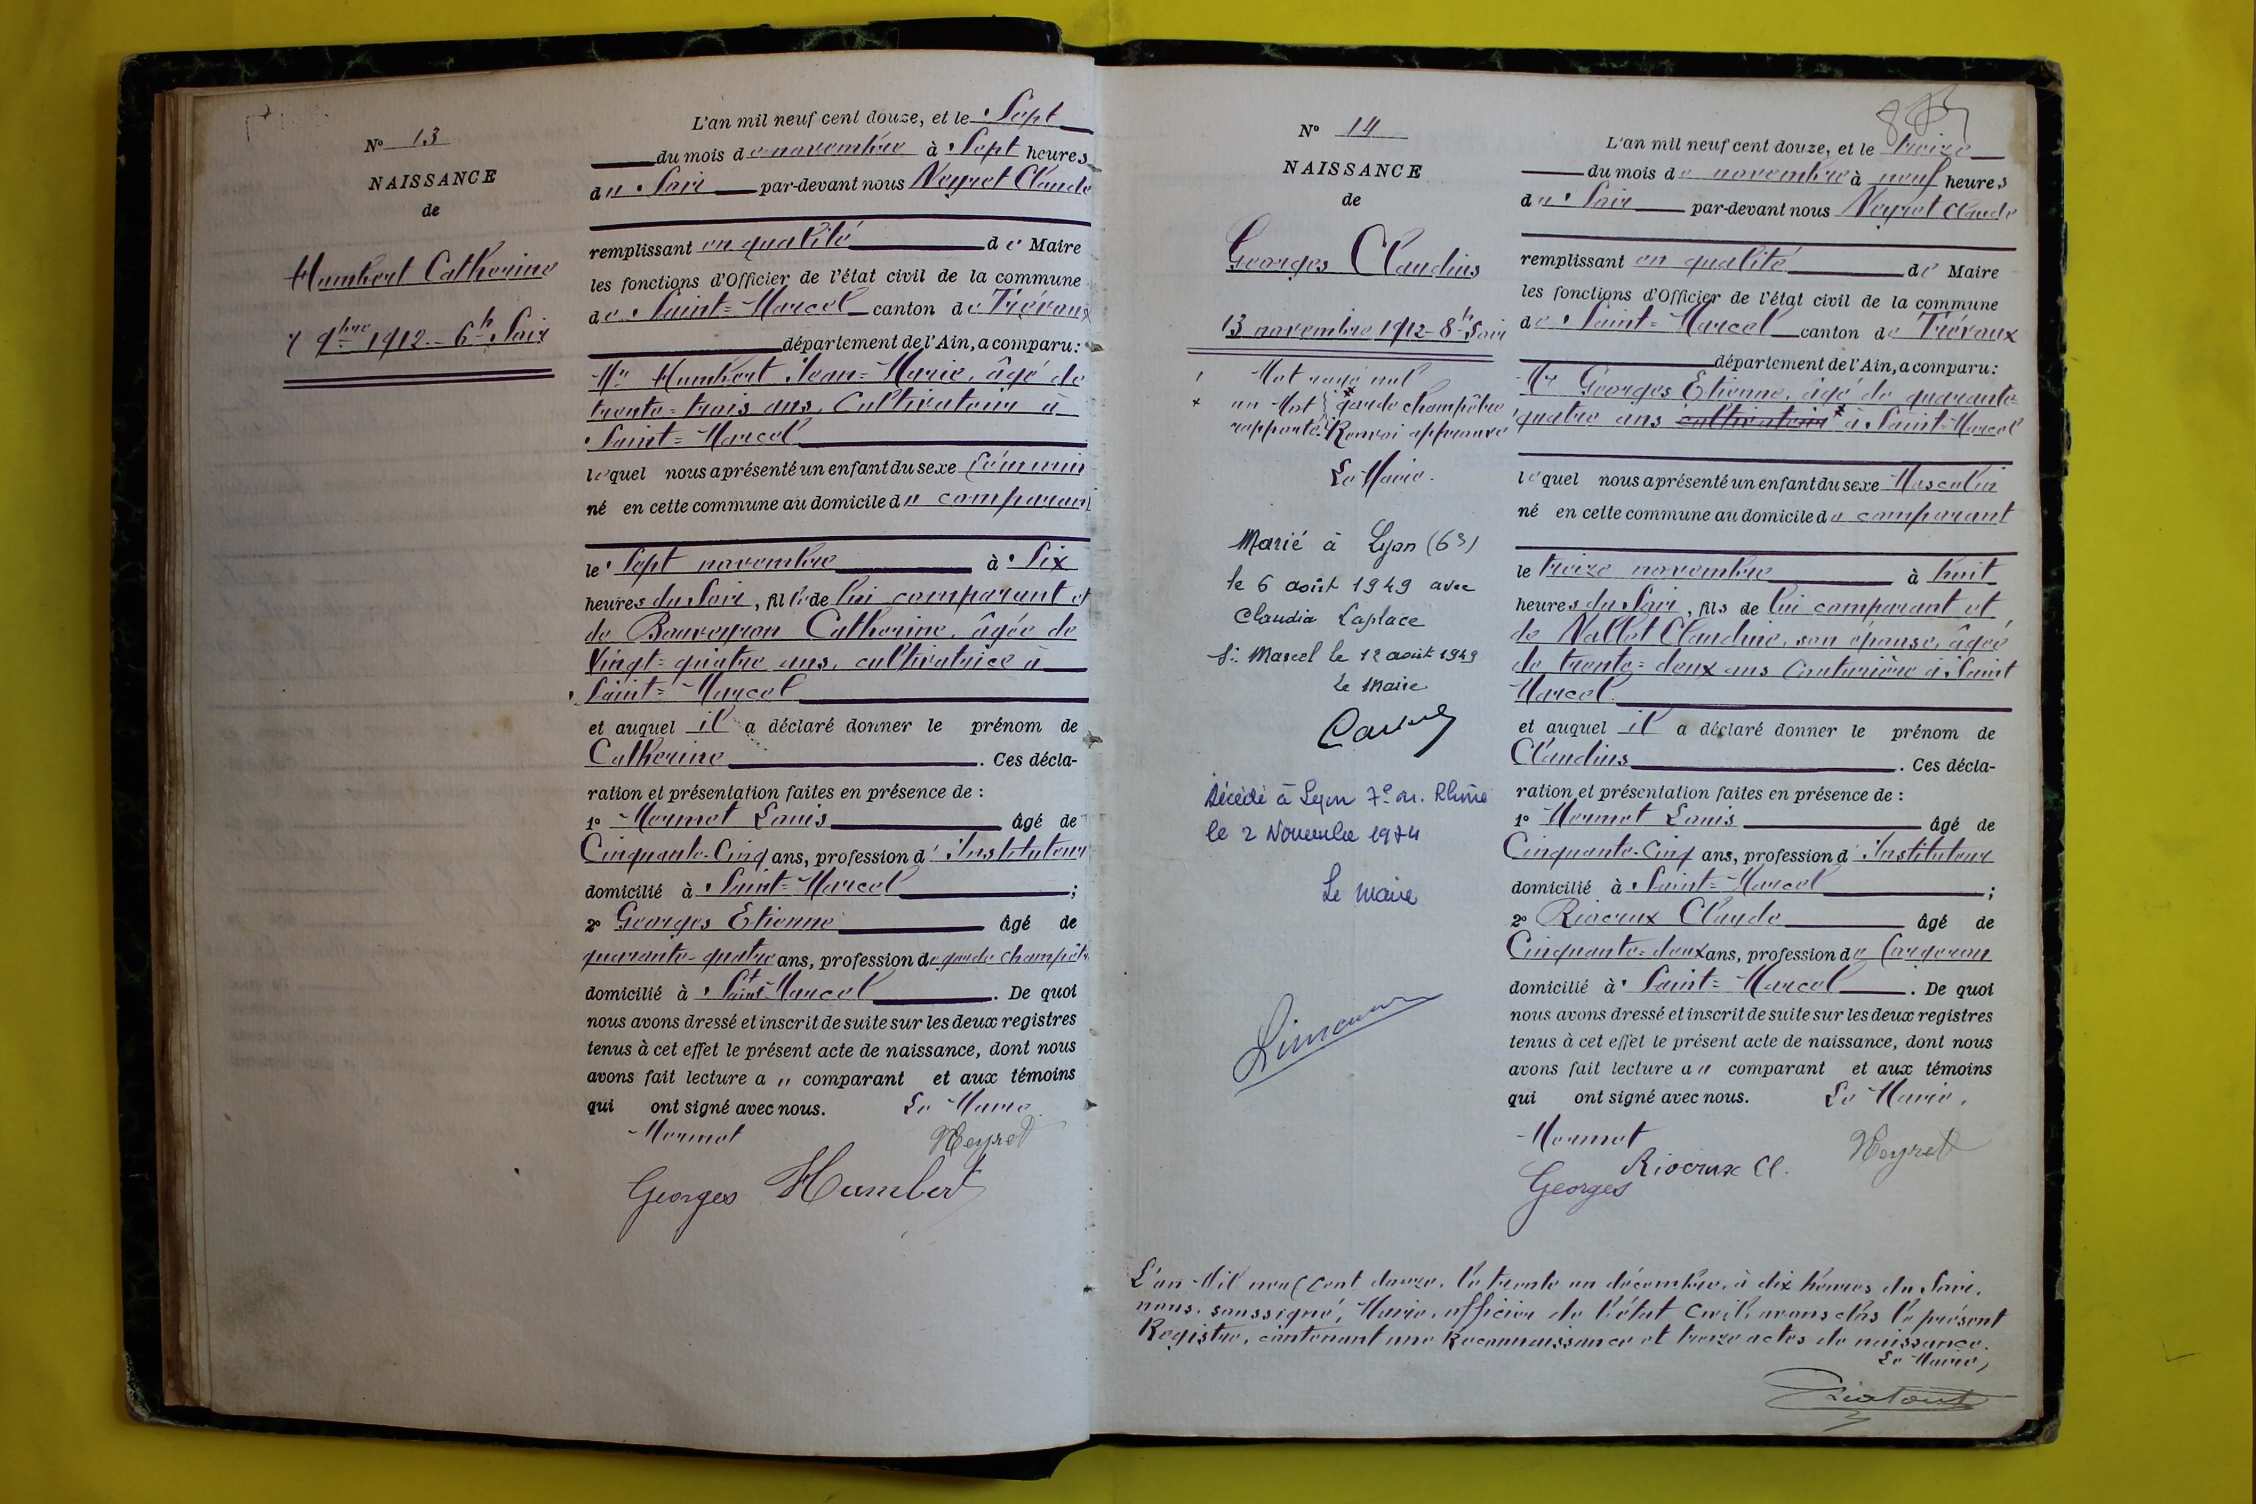 N° 13
NAISSANCE
de
Humbert Catherine
7 9bre 1912 - 6h Soir
L'an mil neuf cent douze, et le Sept
du mois de novembre à Sept heures
du Soir par-devant nous Neyret Claude
remplissant en qualité de Maire
les fonctions d'Officier de l'état civil de la commune
de Saint-Marcel canton de Trévoux
département de l'Ain, a comparu:
Mr Humbert Jean-Marie, âgé de
trente-trois ans, Cultivateur à
Saint-Marcel
lequel nous a présenté un enfant du sexe féminin
né en cette commune au domicile du comparant
le Sept novembre à Six
heures du Soir, fille de lui comparant et
de Bouveyron Catherine, âgée de
Vingt-quatre ans, cultivatrice à
Saint-Marcel
et auquel il a déclaré donner le prénom de
Catherine. Ces décla-
ration et présentation faites en présence de :
1° Mermet Louis âgé de
Cinquante-Cinq ans, profession d'Instituteur
domicilié à Saint-Marcel;
2° Georges Etienne âgé de
quarante-quatre ans, profession de garde champêtre
domicilié à Saint-Marcel. De quoi
nous avons dressé et inscrit de suite sur les deux registres
tenus à cet effet le présent acte de naissance, dont nous
avons fait lecture au comparant et aux témoins
qui ont signé avec nous. Le Maire.
Mermet Neyret
Georges Humbert
N° 14
NAISSANCE
de
Georges Claudius
13 novembre 1912 - 8h Soir
Mot rayé nul
un Mot garde champêtre
rapporté. Renvoi approuvé
Le Maire.
Marié à Lyon (6e)
le 6 août 1949 avec
Claudia Laplace
St Marcel le 12 août 1949
Le Maire
Décédé à Lyon 7e ar. Rhône
le 2 Novembre 1984
Le Maire
L'an mil neuf cent douze, et le treize
du mois de novembre à neuf heures
du Soir par-devant nous Neyret Claude
remplissant en qualité de Maire
les fonctions d'Officier de l'état civil de la commune
de Saint-Marcel canton de Trévoux
département de l'Ain, a comparu:
Mr Georges Etienne, âgé de quarante-
quatre ans cultivateur à Saint-Marcel
lequel nous a présenté un enfant du sexe Masculin
né en cette commune au domicile du comparant
le treize novembre à huit
heures du Soir, fils de lui comparant et
de Vallet Claudine, son épouse, âgée
de trente-deux ans Couturière à Saint
Marcel
et auquel il a déclaré donner le prénom de
Claudius. Ces décla-
ration et présentation faites en présence de :
1° Mermet Louis âgé de
Cinquante-Cinq ans, profession d'Instituteur
domicilié à Saint-Marcel;
2° Riocrux Claude âgé de
Cinquante-deux ans, profession de forgeron
domicilié à Saint-Marcel. De quoi
nous avons dressé et inscrit de suite sur les deux registres
tenus à cet effet le présent acte de naissance, dont nous
avons fait lecture au comparant et aux témoins
qui ont signé avec nous. Le Maire,
Mermet Neyret
Georges Riocrux Cl.
L'an Mil neuf cent douze, le trente un décembre, à dix heures du Soir,
nous, soussigné, Maire, officier de l'état Civil, avons clos le présent
Registre, contenant une Reconnaissance et treize actes de naissance.
Le Maire,